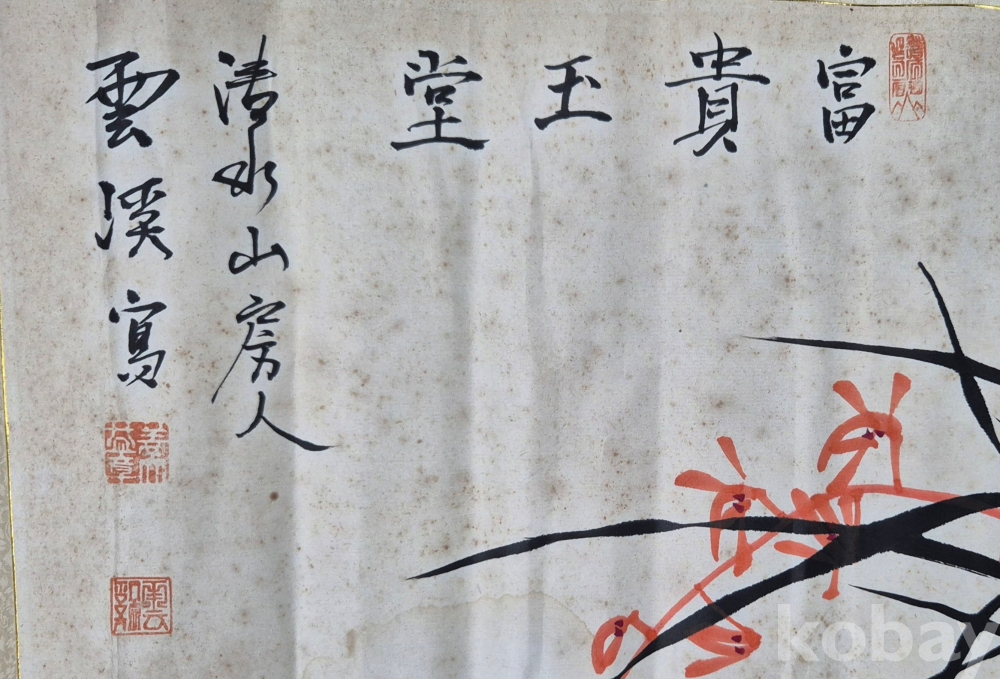 富貴玉堂
清水山房人
雲溪寫
kobay